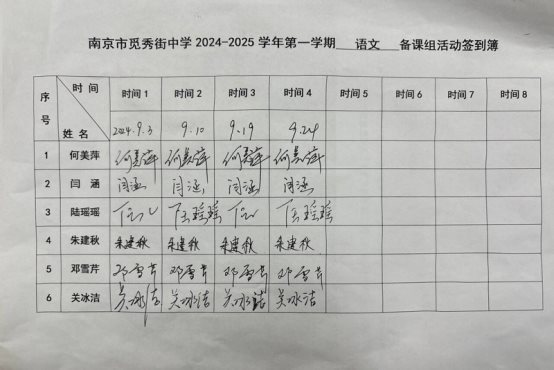 南京市觅秀街中学 2024-2025 学年第一学期 语文 备课组活动签到簿
序号 时间 姓名 时间 1 时间 2 时间 3 时间 4 时间 5 时间 6 时间 7 时间 8
2024.9.3 9.10 9.19 9.24
1 何美萍 何美萍 何美萍 何美萍 何美萍
2 闫 涵 闫涵 闫涵 闫涵 闫涵
3 陆瑶瑶 陆瑶瑶 陆瑶瑶
4 朱建秋 朱建秋 朱建秋 朱建秋 朱建秋
5 邓雪芹 邓雪芹 邓雪芹 邓雪芹 邓雪芹
6 关冰洁 关冰洁 关冰洁 关冰洁 关冰洁